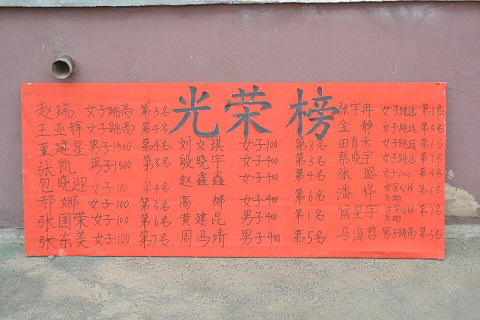 光荣榜
赵瑞 女子跳高 第3名
王亚辉 女子跳高 第4名
董建星 男子1500 第4名
张凯 男子1500 第8名
包晓迎 女子100 第4名
郝娜 女子100 第5名
张国荣 女子100 第6名
张东美 女子100 第7名
刘文琪 女子100 第8名
殷晓宇 女子400 第3名
赵鑫鑫 女子400 第4名
高娜 女子400 第6名
黄建昆 男子400 第1名
周冯靖 男子400 第5名
张宇冉 女子跳远 第1名
金静 女子跳远 第4名
田育禾 女子跳远
蔡晓宇 女子跳远
张璐 女子跳远
潘科 第6名
侯星宇 第7名
马俊哲 男子跳高 第5名